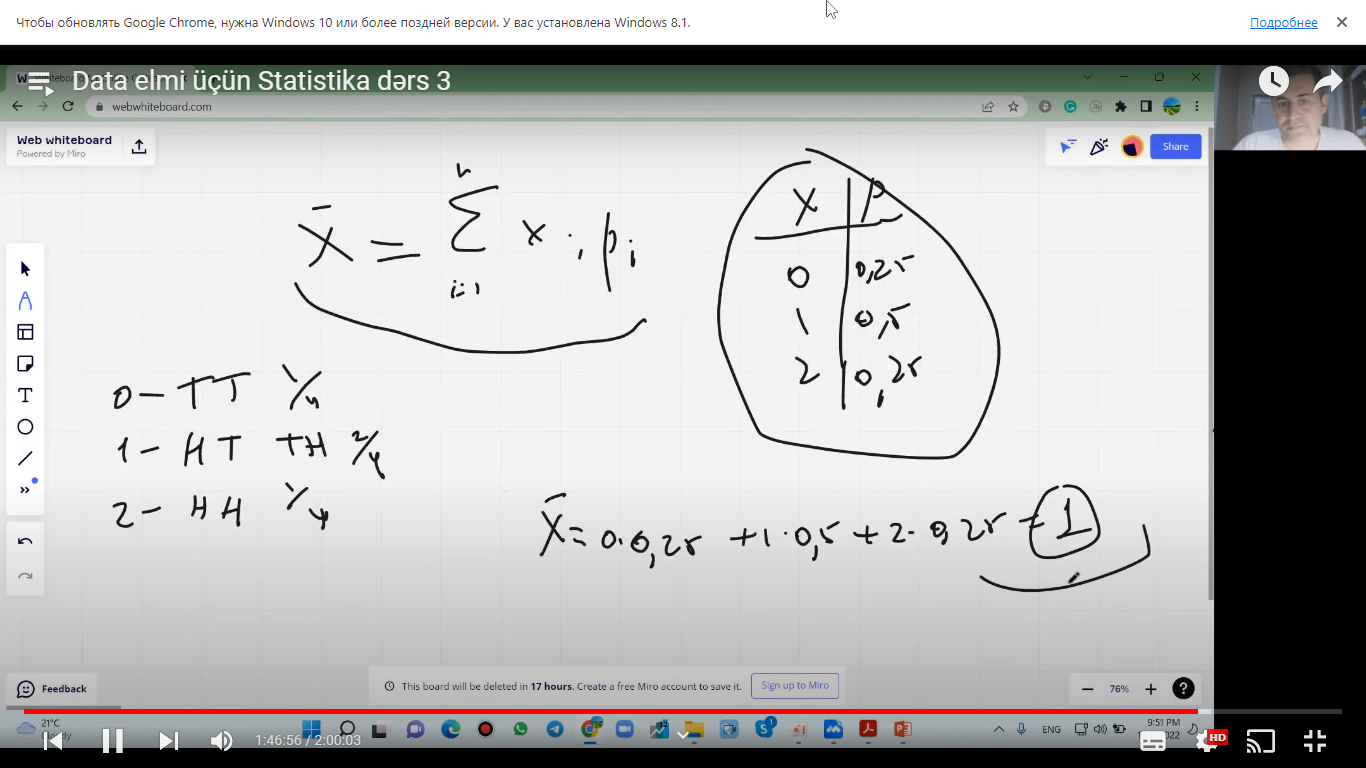 Чтобы обновлять Google Chrome, нужна Windows 10 или более поздней версии. У вас установлена Windows 8.1.
Подробнее
Data elmi üçün Statistika dərs 3
webwhiteboard.com
Web whiteboard
Powered by Miro
Share
X̄ = Σ x i p i
n
i=1
X P
0 0,25
1 0,5
2 0,25
0 - TT 1/4
1 - HT TH 2/4
2 - HH 1/4
X̄ = 0·0,25 + 1·0,5 + 2·0,25 = 1
Feedback
This board will be deleted in 17 hours. Create a free Miro account to save it.
Sign up to Miro
76%
21°C
ENG
9:51 PM
1:46:56 / 2:00:03
HD